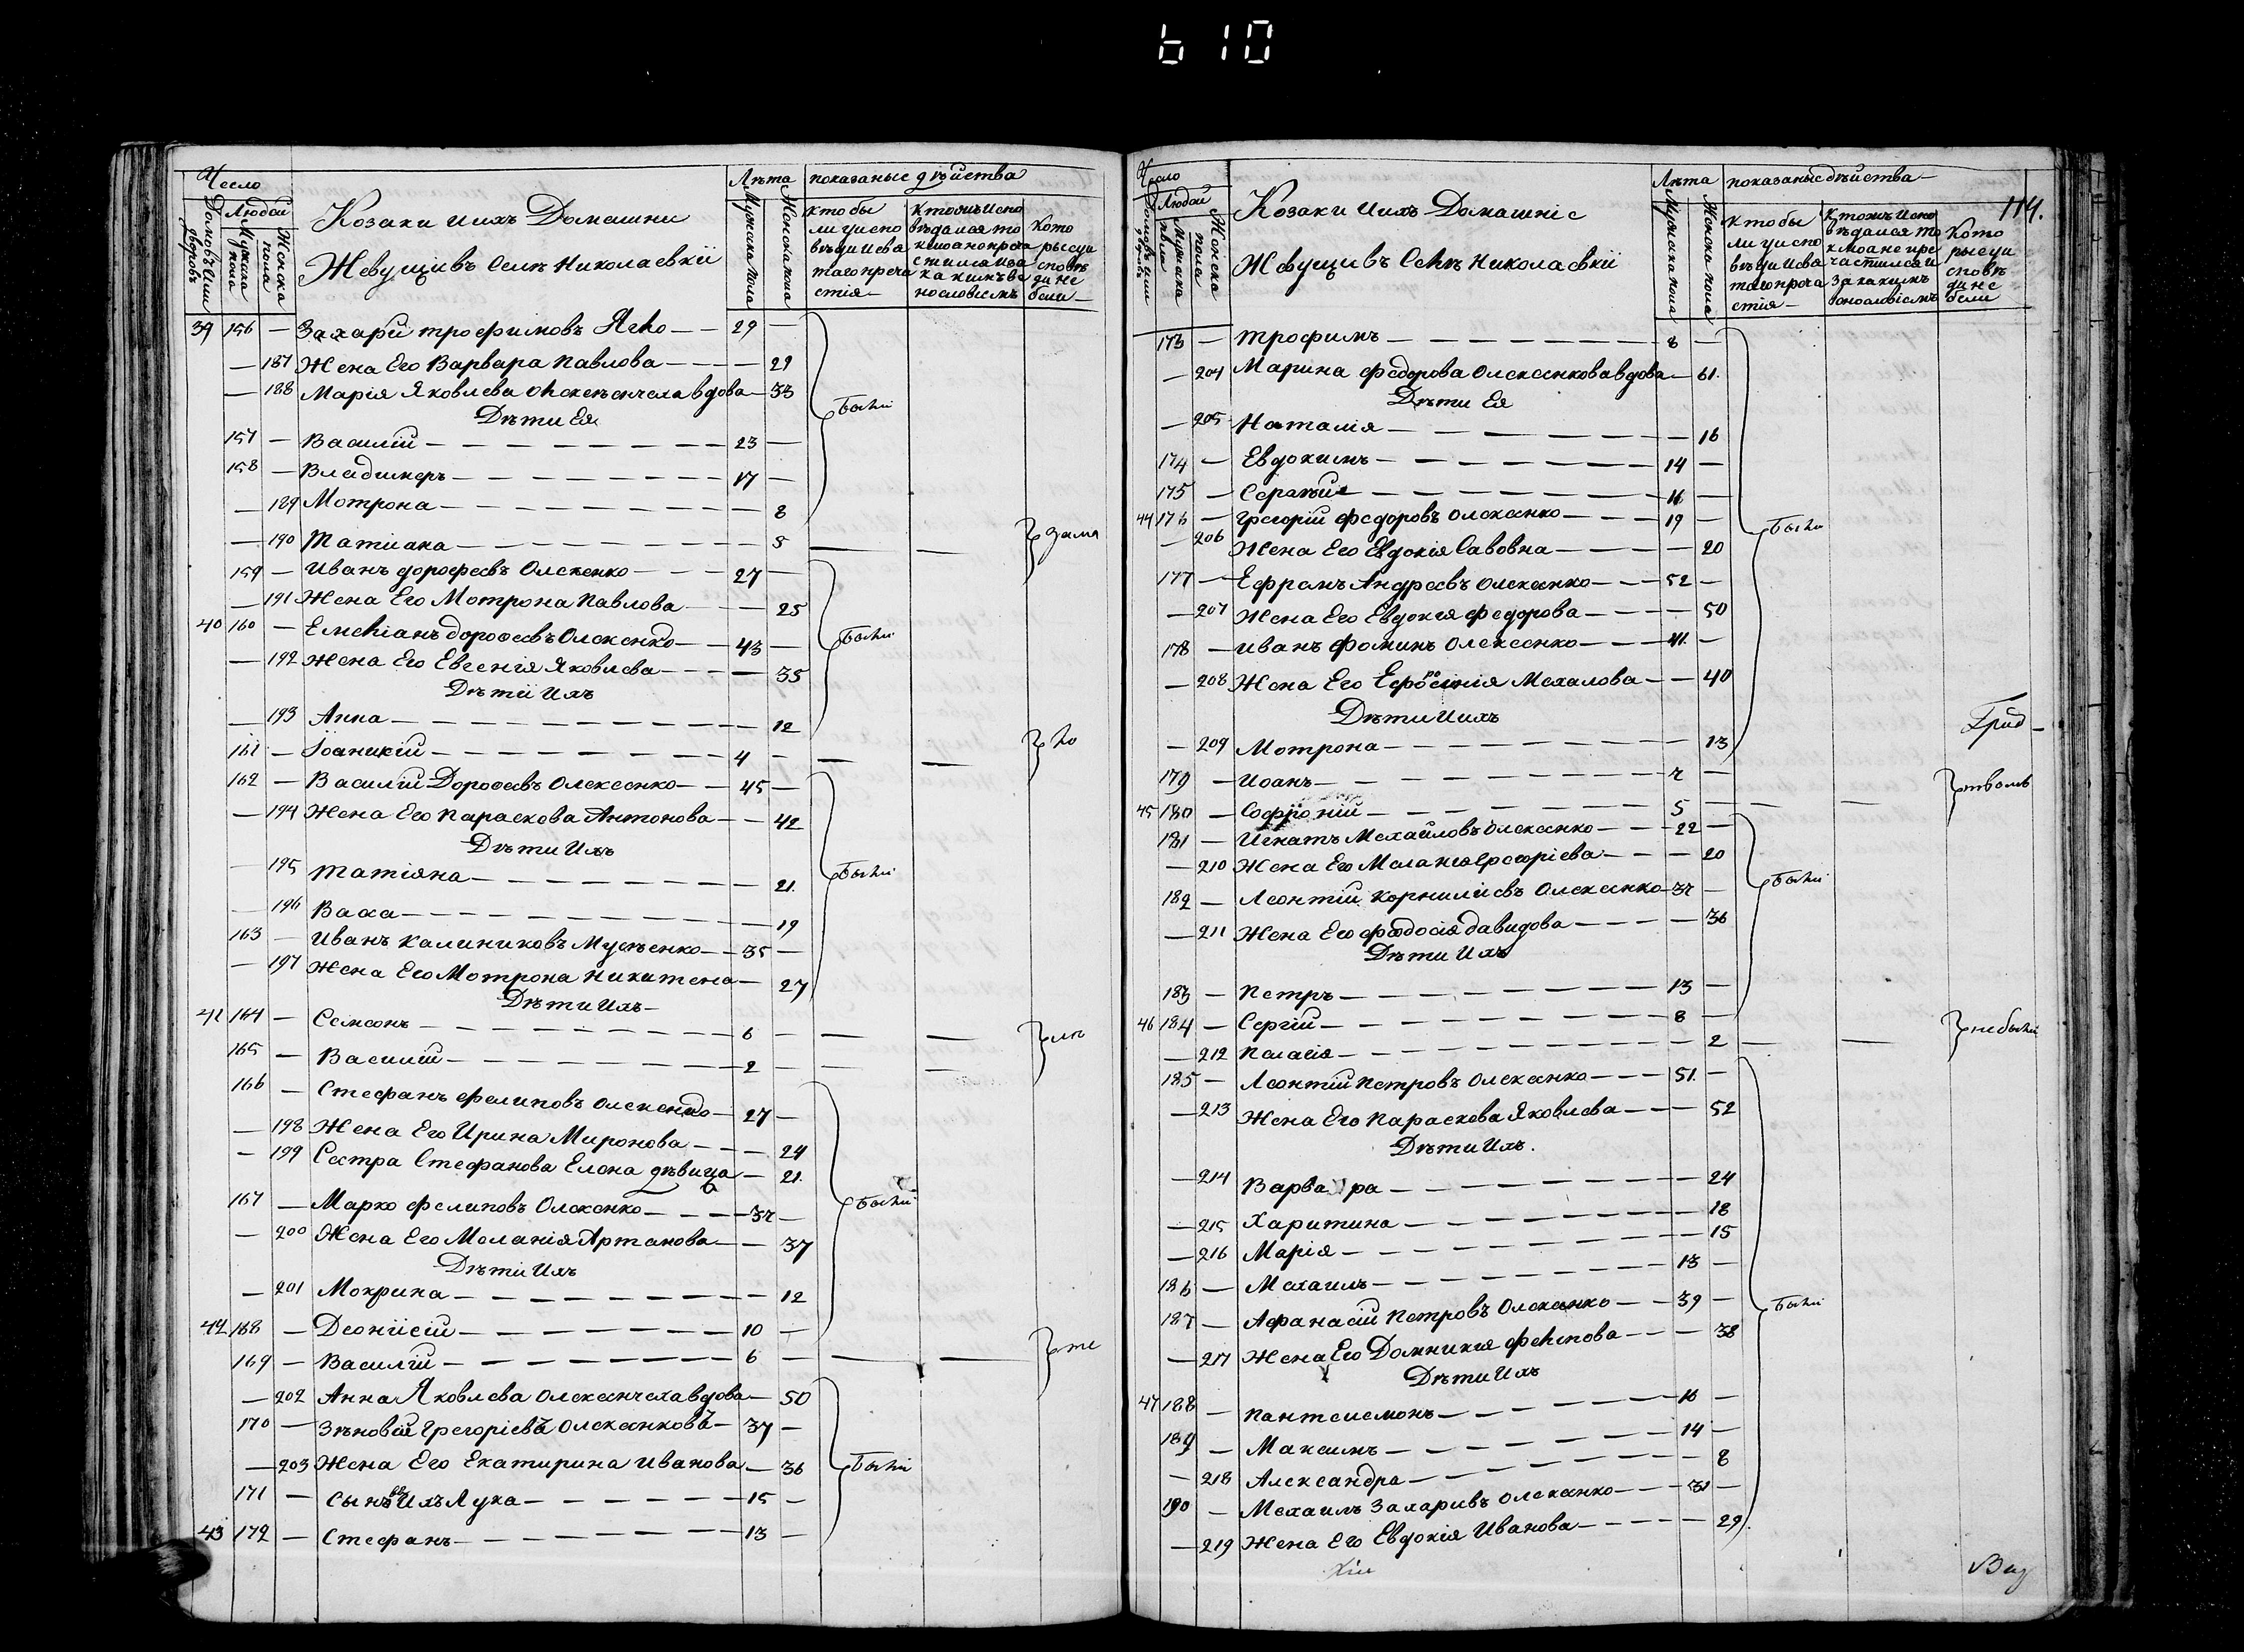 610
Число
Домовъ или дворовъ
Людей
Мужска пола
Женска пола
Козаки и ихъ Домашни
Жевущи въ Селѣ Николаевкїи
Лѣта
Мужска пола
Женска пола
показаные дѣйства
кто бы
ли у испо
вѣди и свя
таго преча
стія
Кто жъ испо
вѣдался то
кмо а не преча
стился и за
какимъ ви
нословіемъ
Кото
рые у и
сповѣ
ди не
были
39 156 — Захарїй трофимовъ — — 29 —
— 187 Жена Его Варвара Павлова — — — — 29
— 188 Марія Яковлева вдова — 33
Дѣти Ея
157 — Василїй — — — 23 —
158 — Владимеръ — — — 17 —
— 189 Мотрона — — — 8
были
— 190 Татиана — — — 5 — —
зама
159 — Иванъ дорофеевъ Олексенко — — — 27 —
— 191 Жена Его Мотрона Павлова — — — 25
40 160 — Емелїанъ дорофеевъ Олексенко — — 43 —
— 192 Жена Его Евгенія Яковлева — — — 35
Дѣти Ихъ
— 193 Анна — — — 12
были
161 — Іоаникїй — — — 4 — — —
ло
162 — Василїй Дорофеевъ Олексенко — — 45 —
— 194 Жена Его Параскова Антонова — — 42
Дѣти Ихъ
— 195 Татіяна — — — 21.
— 196 Васса — — — 19
163 — Иванъ Калиниковъ Мусѣенко — — 35 —
— 197 Жена Его Мотрона Никитена — 27
были
Дѣти Ихъ —
41 164 — Семеонъ — — — 6 — — —
165 — Василїй — — — 2 — — —
лѣ
166 — Стефанъ филиповъ Олексенко — 27 —
— 198 Жена Его Ирина Миронова — — — 24
— 199 Сестра Стефанова Елена дѣвица — 21.
167 — Марко филиповъ Олексенко — — — 37 —
— 200 Жена Его Меланія — — 37
Дѣти Ихъ
— 201 Мокрина — — — 12
42 168 — Деонїсїй — — — 10 —
были
169 — Василїй — — — 6 — — —
те
— 202 Анна Яковлева вдова — 50
170 — Зѣновїй Грегорїевъ Олексенковъ — 37 —
— 203 Жена Его Екатирина Иванова — 36
171 — Сынъ Ихъ Лука — — — 15 —
43 172 — Стефанъ — — — 13 —
были
114.
Число
Домовъ или дворовъ
Людей
Мужска пола
Женска пола
Козаки и ихъ Домашніе
Жевущи въ Селѣ Николаевкїи
Лѣта
Мужска пола
Женска пола
показаные дѣйства
кто бы
ли у испо
вѣди и свя
таго преча
стія —
Кто жъ испо
вѣдался то
кмо а не пре
частился и
за какимъ
винословіемъ
Кото
рые у и
сповѣ
ди не
были
173 — трофимъ — — — 8 —
— 204 Марина федорова Олексенкова вдова — 61.
Дѣти Ея
— 205 Наталія — — — 16
174 — Евдокимъ — — — 14 —
175 — — — —
44 176 — Грегорїй федоровъ Олексенко — — — 19 —
— 206 Жена Его Евдокія Савовна — — — 20
177 — Ефремъ Андреевъ Олексенко — — — 52 —
— 207 Жена Его Евдокія федорова — — — 50
178 — Иванъ фоминъ Олексенко — — — 41 —
— 208 Жена Его Мехалова — — 40
Дѣти Ихъ
— 209 Мотрона — — — 13
были
179 — Иоанъ — — — 7 —
45 180 — Софронїй — — — 5 — — —
Грид —
тволѣ
181 — Игнатъ Мехайловъ Олексенко — — — 22 —
— 210 Жена Его Меланія Грегорїева — — — 20
182 — Леонтїй Корнилїевъ Олексенко — 37 —
— 211 Жена Его феодосія давидова — — — 36
Дѣти Ихъ
183 — Петръ — — — 13 —
были
46 184 — Сергїй — — — 8 —
— 212 Пелагія — — — 2 — —
не были
185 — Леонтїй Петровъ Олексенко — — — 51. —
— 213 Жена Его Параскова Яковлева — — — 52
Дѣти Ихъ.
— 214 Варвара — — — 24
— 215 Харитина — — — 18
— 216 Марія — — — 15
186 — Мехаилъ — — — 13 —
187 — Афанасїй Петровъ Олексенко — — 39 —
— 217 Жена Его Домникія филипова — — — 38
Дѣти Ихъ
47 188 — Пантелемонъ — — — 16 —
189 — Максимъ — — — 14 —
— 218 Александра — — — 8
190 — Мехаилъ Захаривъ Олексенко — — — 31 —
— 219 Жена Его Евдокія Иванова — — — 29
были